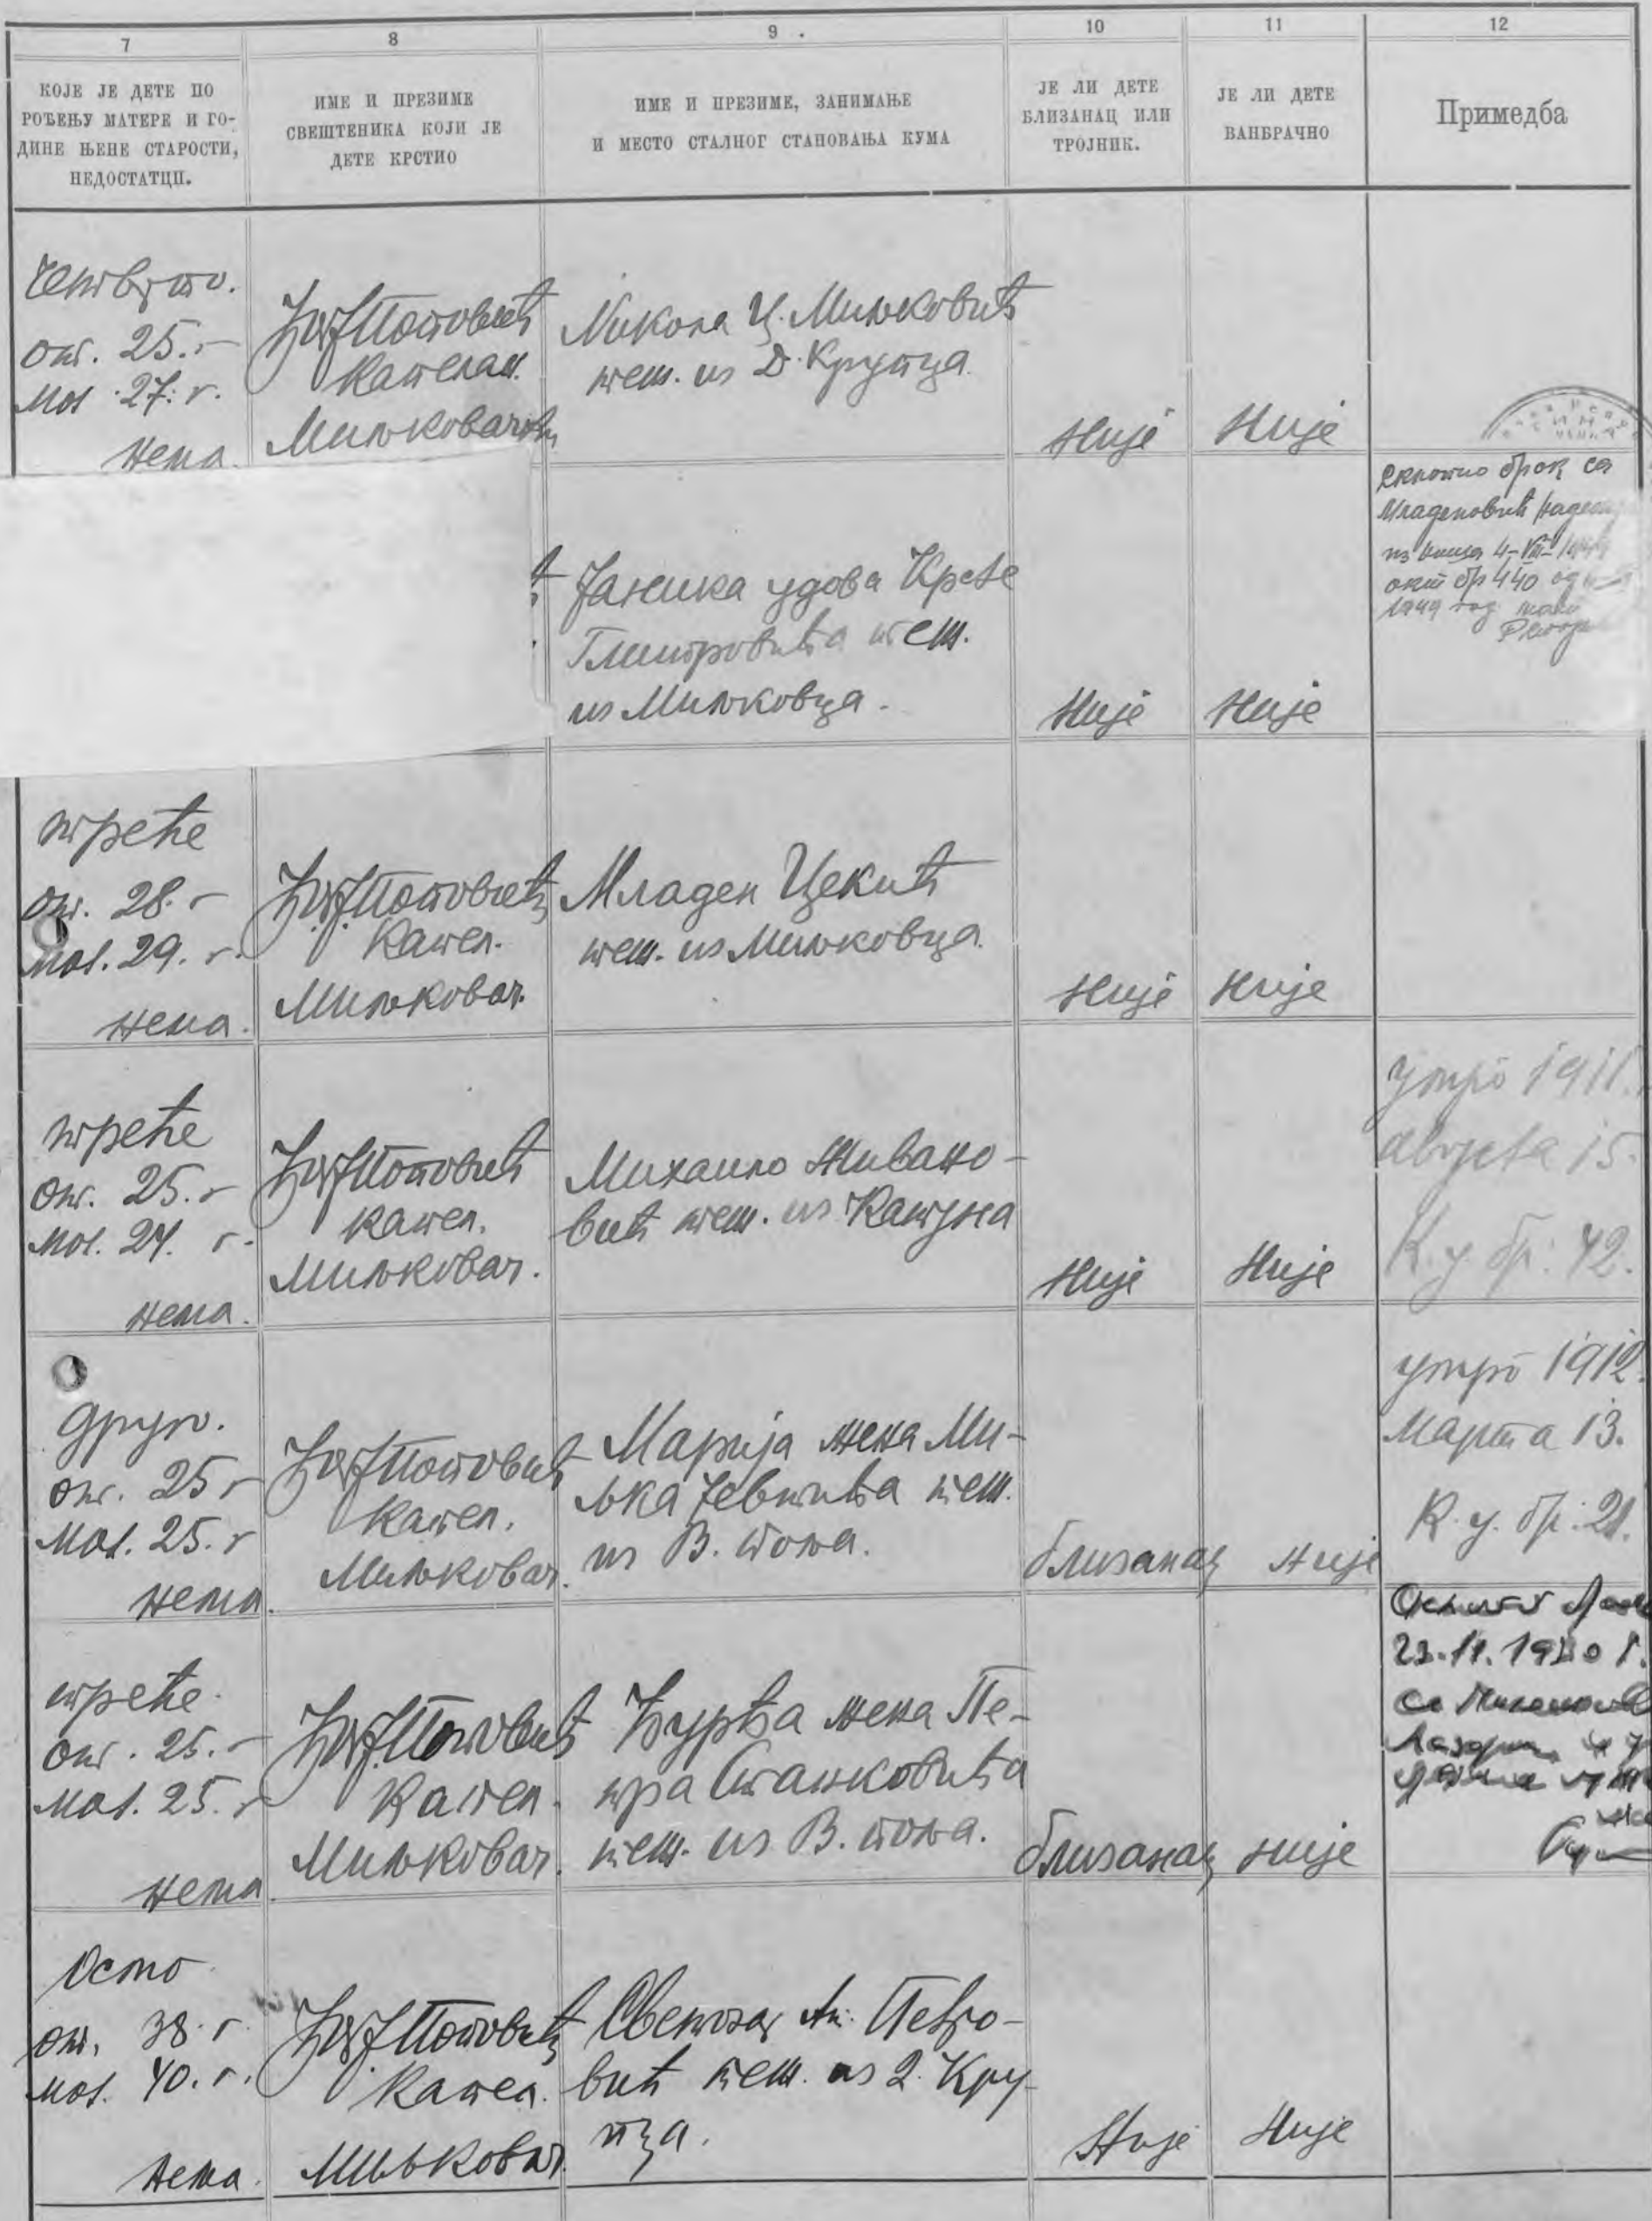 7
8
9
10
11
12
КОЈЕ ЈЕ ДЕТЕ ПО
РОЂЕЊУ МАТЕРЕ И ГО-
ДИНЕ ЊЕНЕ СТАРОСТИ,
НЕДОСТАТЦИ.
ИМЕ И ПРЕЗИМЕ
СВЕШТЕНИКА КОЈИ ЈЕ
ДЕТЕ КРСТИО
ИМЕ И ПРЕЗИМЕ, ЗАНИМАЊЕ
И МЕСТО СТАЛНОГ СТАНОВАЊА КУМА
ЈЕ ЛИ ДЕТЕ
БЛИЗАНАЦ ИЛИ
ТРОЈНИК.
ЈЕ ЛИ ДЕТЕ
ВАНБРАЧНО
Примедба
четврто.
от. 25. г
мат. 27. г.
нема.
Поповић
капелан
Миљковачки
Никола Ц. Миљковић
теж. из Д. Крупца
Није
Није
Склопио брак са
Младеновић
из 4-VIII-
акт бр 440
1949 год
Јаника удова Крсте
Глигоровића теж.
из Миљковца.
Није
Није
треће
от. 28. г
мат. 29. г.
нема.
Поповић
капел.
Миљковач.
Младен Цекић
теж. из Миљковца.
Није
Није
треће
от. 25. г
мат. 24. г.
нема.
Поповић
капел.
Миљковач.
Михаило Живано-
вић теж. из Катуна
Није
Није
умро 1911.
августа 15.
К. у. бр: 42.
друго.
от. 25 г
мат. 25. г
нема.
Поповић
капел.
Миљковач.
Марија жена Ми-
љка Јевтића теж.
из В. поља.
близанац
није
умро 1912.
марта 13.
К. у. бр: 21.
треће
от. 25. г
мат. 25. г
нема.
Поповић
капел.
Миљковач.
Ђурђа жена Пе-
тра Станковића
теж. из В. поља.
близанац
није
Осмо
от. 38. г.
мат. 40. г.
нема.
Поповић
капел.
Миљковач.
Светозар Ан. Петро-
вић теж. из Д. Кру-
пца.
Није
Није